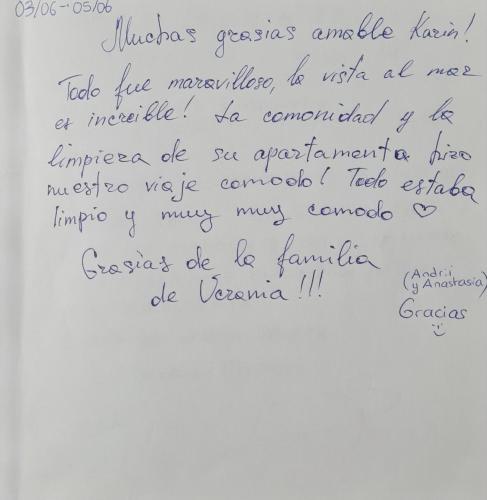 03/06 - 05/06
Muchas grasias amable Karin!
Todo fue maravilloso, la vista al mar
es increible! La comonidad y la
limpieza de su apartamenta hizo
nuestro viaje comodo! Todo estaba
limpio y muy muy comodo ♡
Grasias de la familia
de Ucrania!!!
(Andrii
y Anastasia)
Gracias